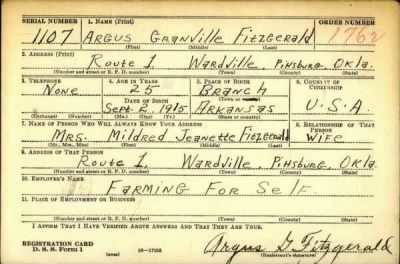 SERIAL NUMBER 1. NAME (Print) ORDER NUMBER
1107 ARGUS GRANVILLE FITZGERALD 1762
(First) (Middle) (Last)
2. ADDRESS (Print)
ROUTE 1 WARDVILLE PITTSBURG, OKLA.
(Number and street or R. F. D. number) (Town) (County) (State)
3. TELEPHONE 4. AGE IN YEARS 5. PLACE OF BIRTH 6. COUNTRY OF CITIZENSHIP
NONE 25 BRANCH
DATE OF BIRTH (Town or county)
SEPT. 1915 ARKANSAS U.S.A.
(Exchange) (Number) (Mo.) (Day) (Yr.) (State or country)
7. NAME OF PERSON WHO WILL ALWAYS KNOW YOUR ADDRESS 8. RELATIONSHIP OF THAT PERSON
MRS. MILDRED JEANETTE FITZGERALD WIFE
(Mr., Mrs., Miss) (First) (Middle) (Last)
9. ADDRESS OF THAT PERSON
ROUTE 1 WARDVILLE, PITTSBURG, OKLA.
(Number and street or R. F. D. number) (Town) (County) (State)
10. EMPLOYER'S NAME
FARMING FOR SELF
11. PLACE OF EMPLOYMENT OR BUSINESS
(Number and street or R. F. D. number) (Town) (County) (State)
I AFFIRM THAT I HAVE VERIFIED ABOVE ANSWERS AND THAT THEY ARE TRUE.
REGISTRATION CARD
D. S. S. Form 1 (over) Argus G Fitzgerald
(Registrant's signature)